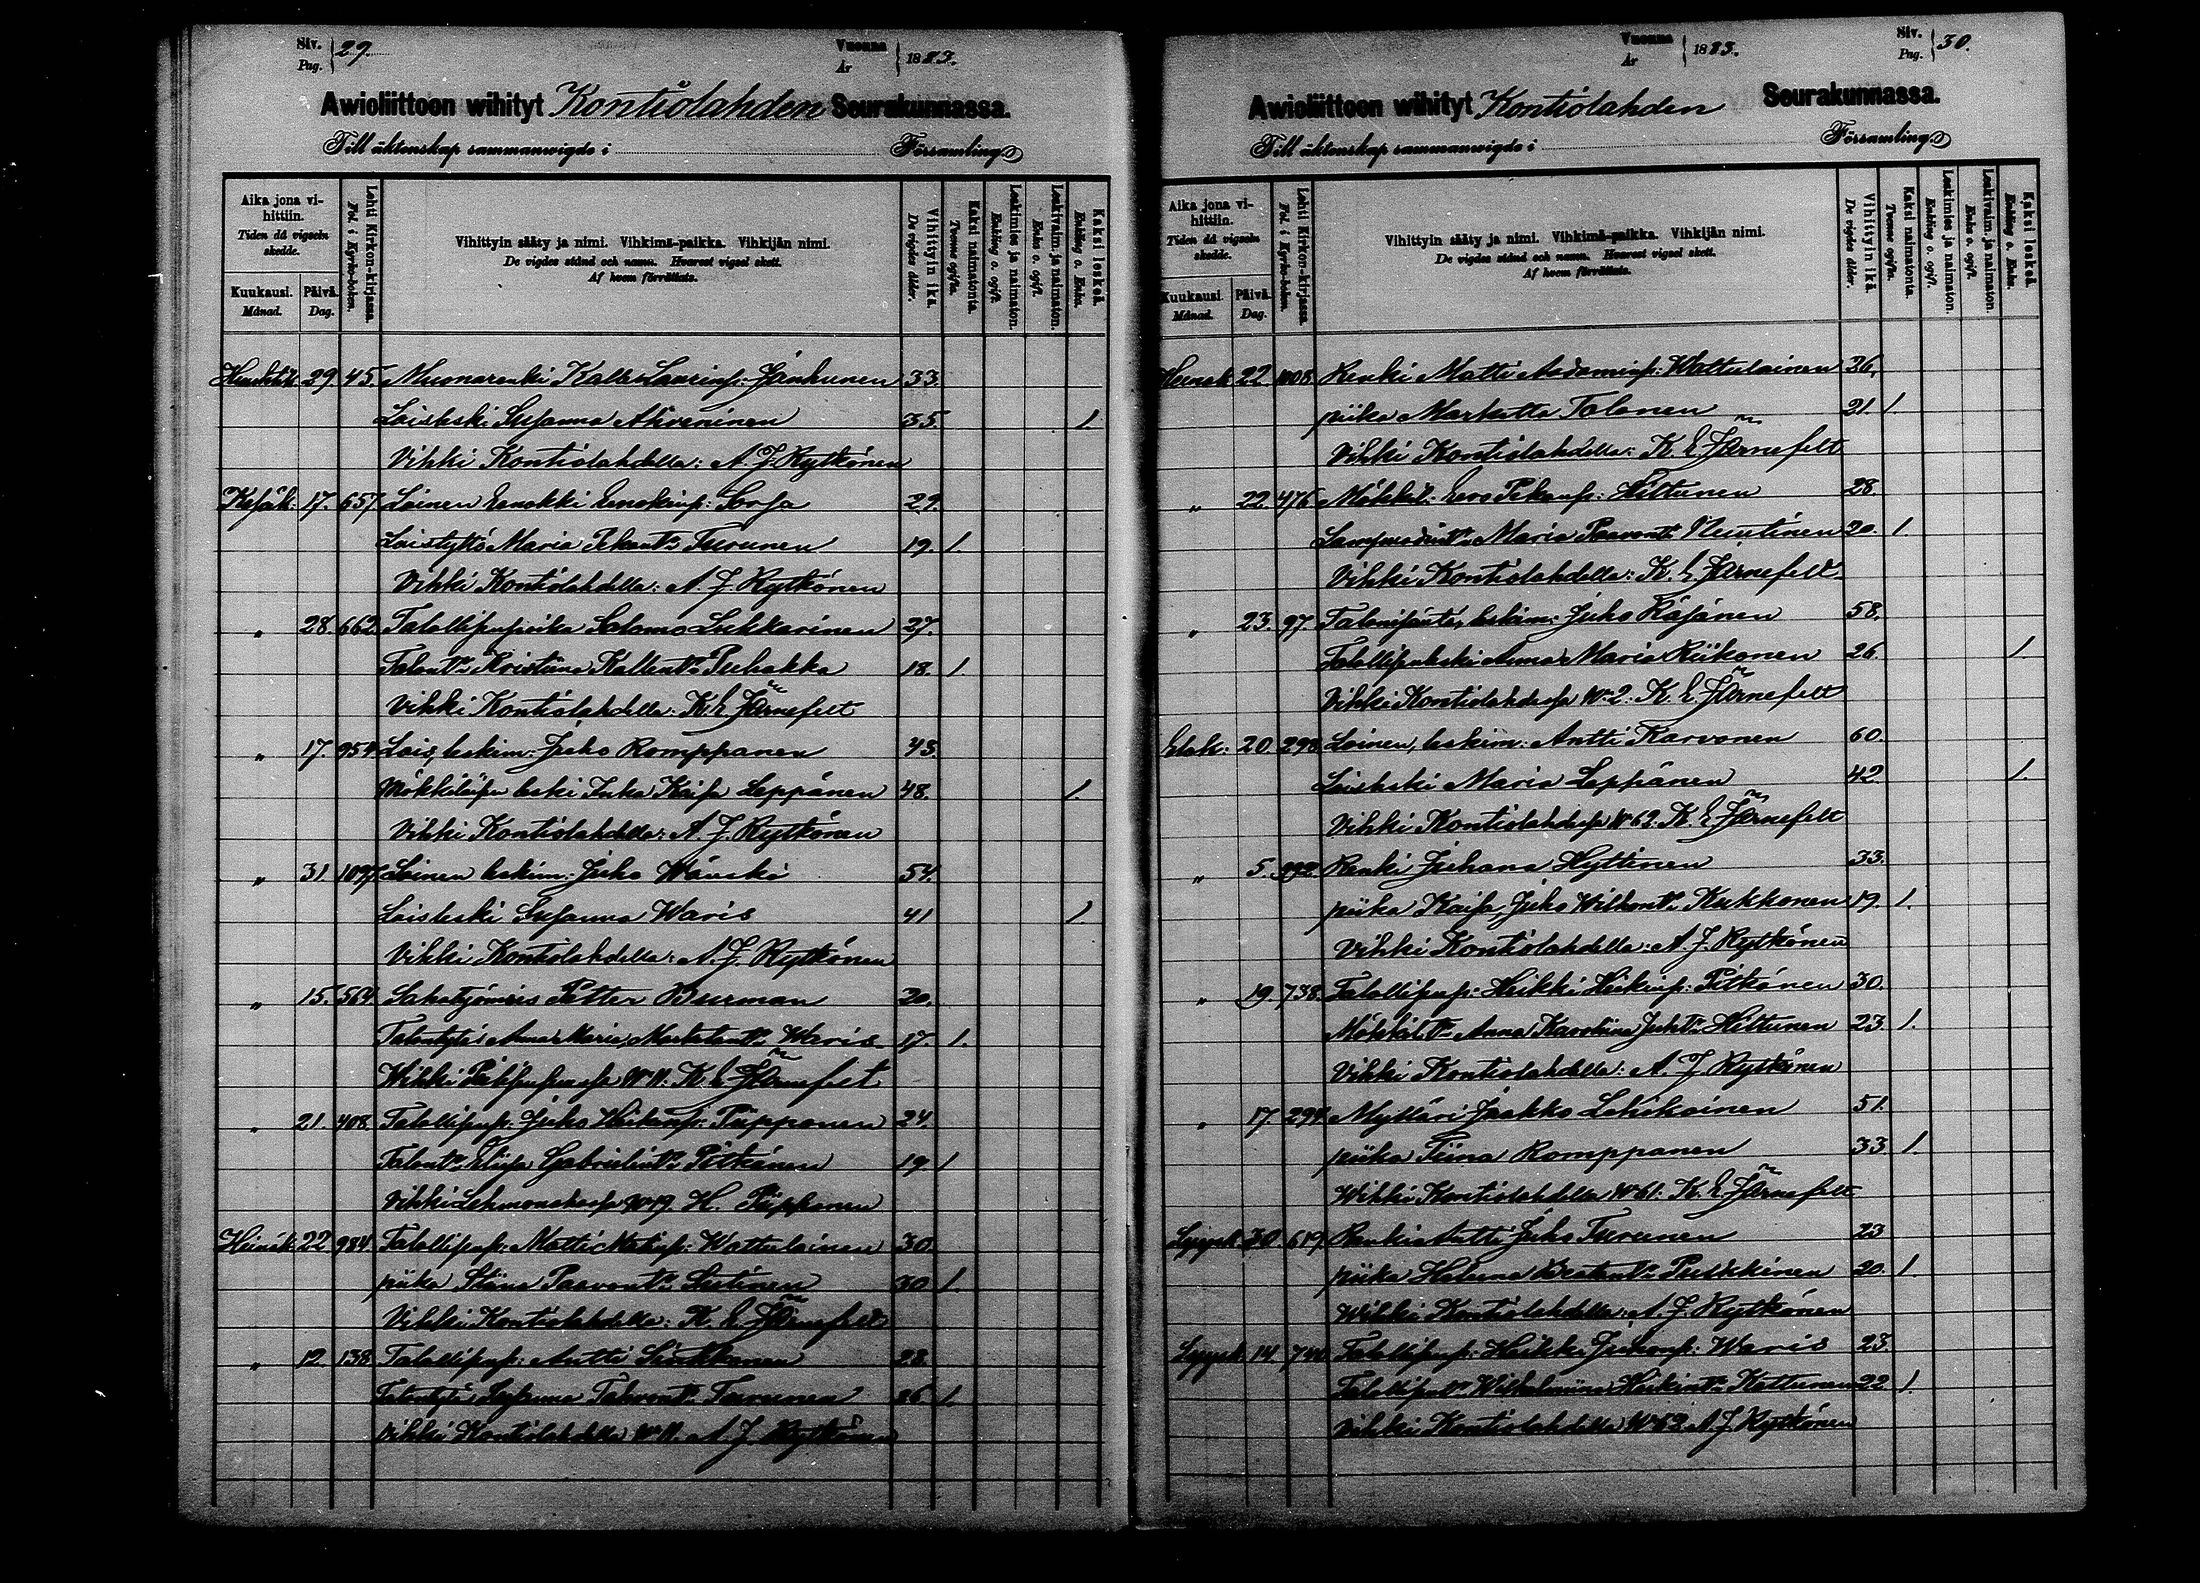 Siv. Pag. 29.
Vuonna År 1883.
Awioliittoon wihityt Kontiolahden Seurakunnassa.
Till äktenskap sammanwigde i Församling
Aika jona vihittiin. Tiden då vigseln skedde.
Kuukausi. Månad.
Päivä. Dag.
Lehti Kirkon-kirjassa. Fol. i Kyrko-boken.
Vihittyin sääty ja nimi. Vihkimä-paikka. Vihkijän nimi.
De vigdes stånd och namn. Hvarest vigsel skett.
Af hvem förrättats.
Vihittyin ikä. De vigdes ålder.
Kaksi naimatonta. Tvenne ogifta.
Leskimies ja naimaton. Enkling o. ogift.
Leskivaim. ja naimaton. Enka o. ogift.
Kaksi leskeä. Enkling o. Enka.
29 45 Muonarenki Kalle Laurinp: Jänhunen 33.
Loisleski Susanna Ahveninen 35. 1.
Vihki Kontiolahdella: A. J. Rytkönen
Kesäk: 17. 657 Loinen Eenokki Eenokinp: Sorsa 29.
Loistyttö Maria Pekant: Turunen 19. 1.
Vihki Kontiolahdella: A. J. Rytkönen
" 28. 662 Talollisenpoika Salomo Lukkarinen 27.
Talont: Kristiina Kallent: Puhakka 18. 1.
Vihki Kontiolahdella: K. E. Järnefelt
" 17. 954 Lois, leskim: Juho Romppanen 43.
leski Inka Kaisa Leppänen 48. 1.
Vihki Kontiolahdella: A. J. Rytkönen
" 31. 1097 Loinen leskim: Juho Wänskä 54.
Loisleski Susanna Waris 41 1
Vihki Kontiolahdella: A. J. Rytkönen
" 15. 564 Sahatyömies Petter Burman 20.
Anna Maria Waris 17. 1.
Wihki K. E. Järnefelt
" 21. 408 Talollisenp: Juho Heikinp: Piipponen 24.
Talont: Eliisa Gabrielint: Pitkänen 19 1
Vihki Lehmonahossa No 19. H. Piipponen
Heinäk 22 984 Talollisenp: Matti Matinp: Wattulainen 30.
piika Stiina Paavont: Suutinen 30 1.
Vihki Kontiolahdella: K. E. Järnefelt
" 12. 138 Talollisenp: Antti 28.
Susanna Turunen 26 1.
Vihki Kontiolahdella A. J. Rytkönen
Vuonna År 1883.
Siv. Pag. 30.
Awioliittoon wihityt Kontiolahden Seurakunnassa.
Till äktenskap sammanwigde i Församling
Aika jona vihittiin. Tiden då vigseln skedde.
Kuukausi. Månad.
Päivä. Dag.
Lehti Kirkon-kirjassa. Fol. i Kyrko-boken.
Vihittyin sääty ja nimi. Vihkimä-paikka. Vihkijän nimi.
De vigdes stånd och namn. Hvarest vigsel skett.
Af hvem förrättats.
Vihittyin ikä. De vigdes ålder.
Kaksi naimatonta. Tvenne ogifta.
Leskimies ja naimaton. Enkling o. ogift.
Leskivaim. ja naimaton. Enka o. ogift.
Kaksi leskeä. Enkling o. Enka.
Heinäk 22 1008 Renki Matti Aadaminp: Wattulainen 26.
piika Markatta Tolonen 21. 1.
Vihki Kontiolahdella: K. E. Järnefelt
" 22. 476 Mökkil: Eero Pekanp: Hiltunen 28.
Maria Paavont: Nuutinen 20. 1.
Vihki Kontiolahdella: K. E. Järnefelt
" 23. 97. Talonisäntä, leskim: Juho Räsänen 58.
Talollisenleski Anna Maria Riikonen 26. 1.
Vihki Kontiolahdessa No 2. K. E. Järnefelt
Elok: 20. 298 Loinen, leskim: Antti Karvonen 60.
Loisleski Maria Leppänen 42. 1.
Vihki Kontiolahdessa No 63. K. E. Järnefelt
" 5. 992 Renki Juhana Hyttinen 33.
piika Kaisa, Juho Wilhont: Kukkonen 19. 1.
Vihki Kontiolahdella: A. J. Rytkönen
" 19. 738. Talollisenp: Heikki Heikinp: Pitkänen 30.
Mökkilt: Anna Karoliina Juhot: Hiltunen 23 1.
Vihki Kontiolahdella: A. J. Rytkönen
" 17. 294 Mylläri Jaakko Lehikoinen 51.
piika Tiina Romppanen 33 1.
Wihki Kontiolahdella No 61: K. E. Järnefelt
Syysk 30 619 Renki Antti Juho Turunen 23
piika Helena Puikkinen 20. 1.
Wihki Kontiolahdella: A. J. Rytkönen
Syysk 14 740 Talollisenp: Heikki Juhonp: Waris 23.
Talollisent: Wilhelmiina Heikint: Kettunen 22 1.
Vihki Kontiolahdella No 63 A. J. Rytkönen